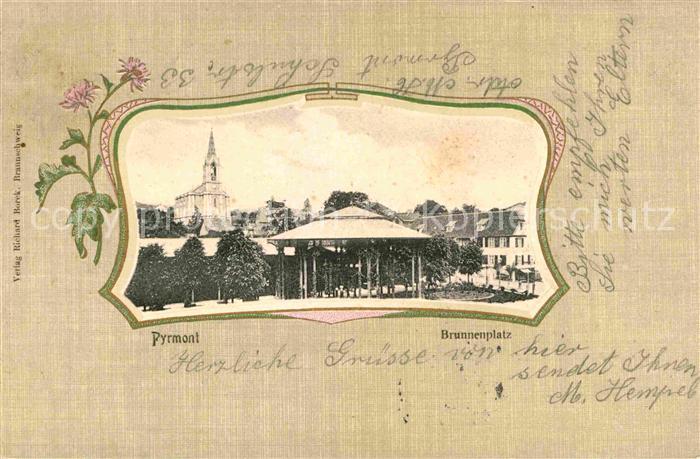 Adr. M. H.
Pyrmont Schulstr. 33
Bitte empfehlen
Sie mich Ihren
werten Eltern
Verlag Richard Borek, Braunschweig
Copyright ansichtskartenschulz
Pyrmont
Brunnenplatz
Herzliche Grüsse von hier
sendet Ihnen
M. Hempel